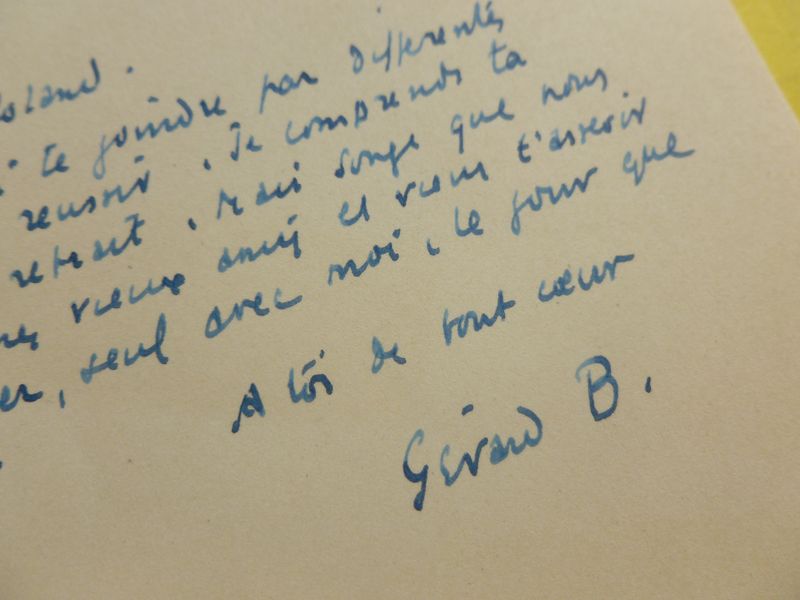 Roland.
te joindre par différents
réussir. Je comprends ta
retrait. Mais songe que nous
vieux amis et viens t'asseoir
er, seul avec moi, le jour que
A toi de tout cœur
Gérard B.